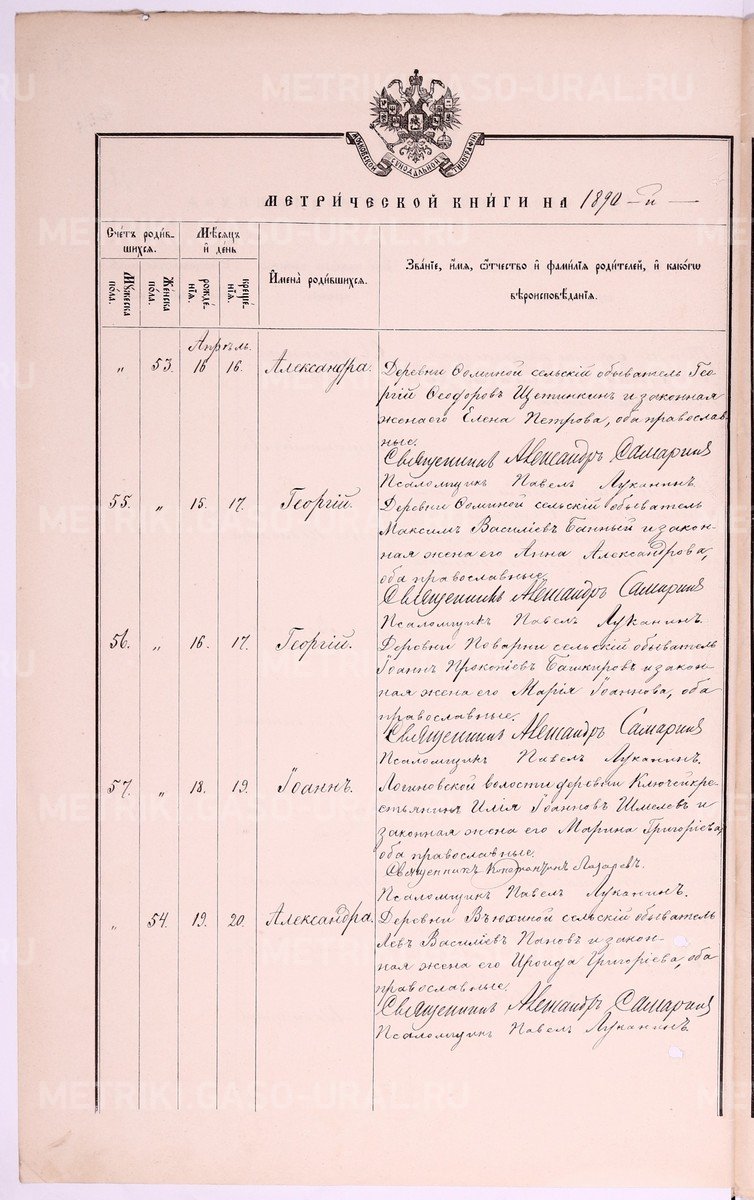 METRIKI.GASO-URAL.RU
МОСКОВСКОЙ СѴНОДАЛЬНОЙ ТИПОГРАФІИ
МЕТРИ́ЧЕСКОЙ КНИ́ГИ НА 1890-й
Сче́тъ роди́вшихся.
Му́жеска по́ла.
Же́нска по́ла.
Мѣ́сяцъ и́ де́нь
рождéнїя.
крещéнїя.
И҆менà роди́вшихся.
Зва́нїе, и҆́мя, ѻ҆́тчество и҆ фами́лїя роди́телей, и҆ како́гѡ
вѣроисповѣ́данїя.
Апрѣль.
„ 53. 16 16. Александра. Деревни Ѳоминой сельскій обыватель Гео-
ргій Ѳеодоровъ Щетинкинъ и законная
жена его Елена Петрова, оба православ-
ные.
Священникъ Александръ Самаринъ
Псаломщикъ Павелъ Луканинъ.
55. „ 15. 17. Георгій. Деревни Ѳоминой сельскій обыватель
Максимъ Василіевъ Банный и закон-
ная жена его Анна Александрова,
оба православные.
Священникъ Александръ Самаринъ
Псаломщикъ Павелъ Луканинъ.
56. „ 16. 17. Георгій. Деревни Поварни сельскій обыватель
Іоаннъ Прокопіевъ Башкировъ и закон-
ная жена его Марія Іоаннова, оба
православные.
Священникъ Александръ Самаринъ
Псаломщикъ Павелъ Луканинъ.
57. „ 18. 19. Іоаннъ. Логиновской волости деревни Ключей кре-
стьянинъ Илія Іоанновъ Шмелевъ и
законная жена его Марина Григоріева,
оба православные.
Священникъ Константинъ Лазаревъ.
Псаломщикъ Павелъ Луканинъ.
„ 54. 19. 20. Александра. Деревни Вьюхиной сельскій обыватель
Левъ Василіевъ Пановъ и закон-
ная жена его Ироида Григоріева, оба
православные.
Священникъ Александръ Самаринъ
Псаломщикъ Павелъ Луканинъ
METRIKI.GASO-URAL.RU